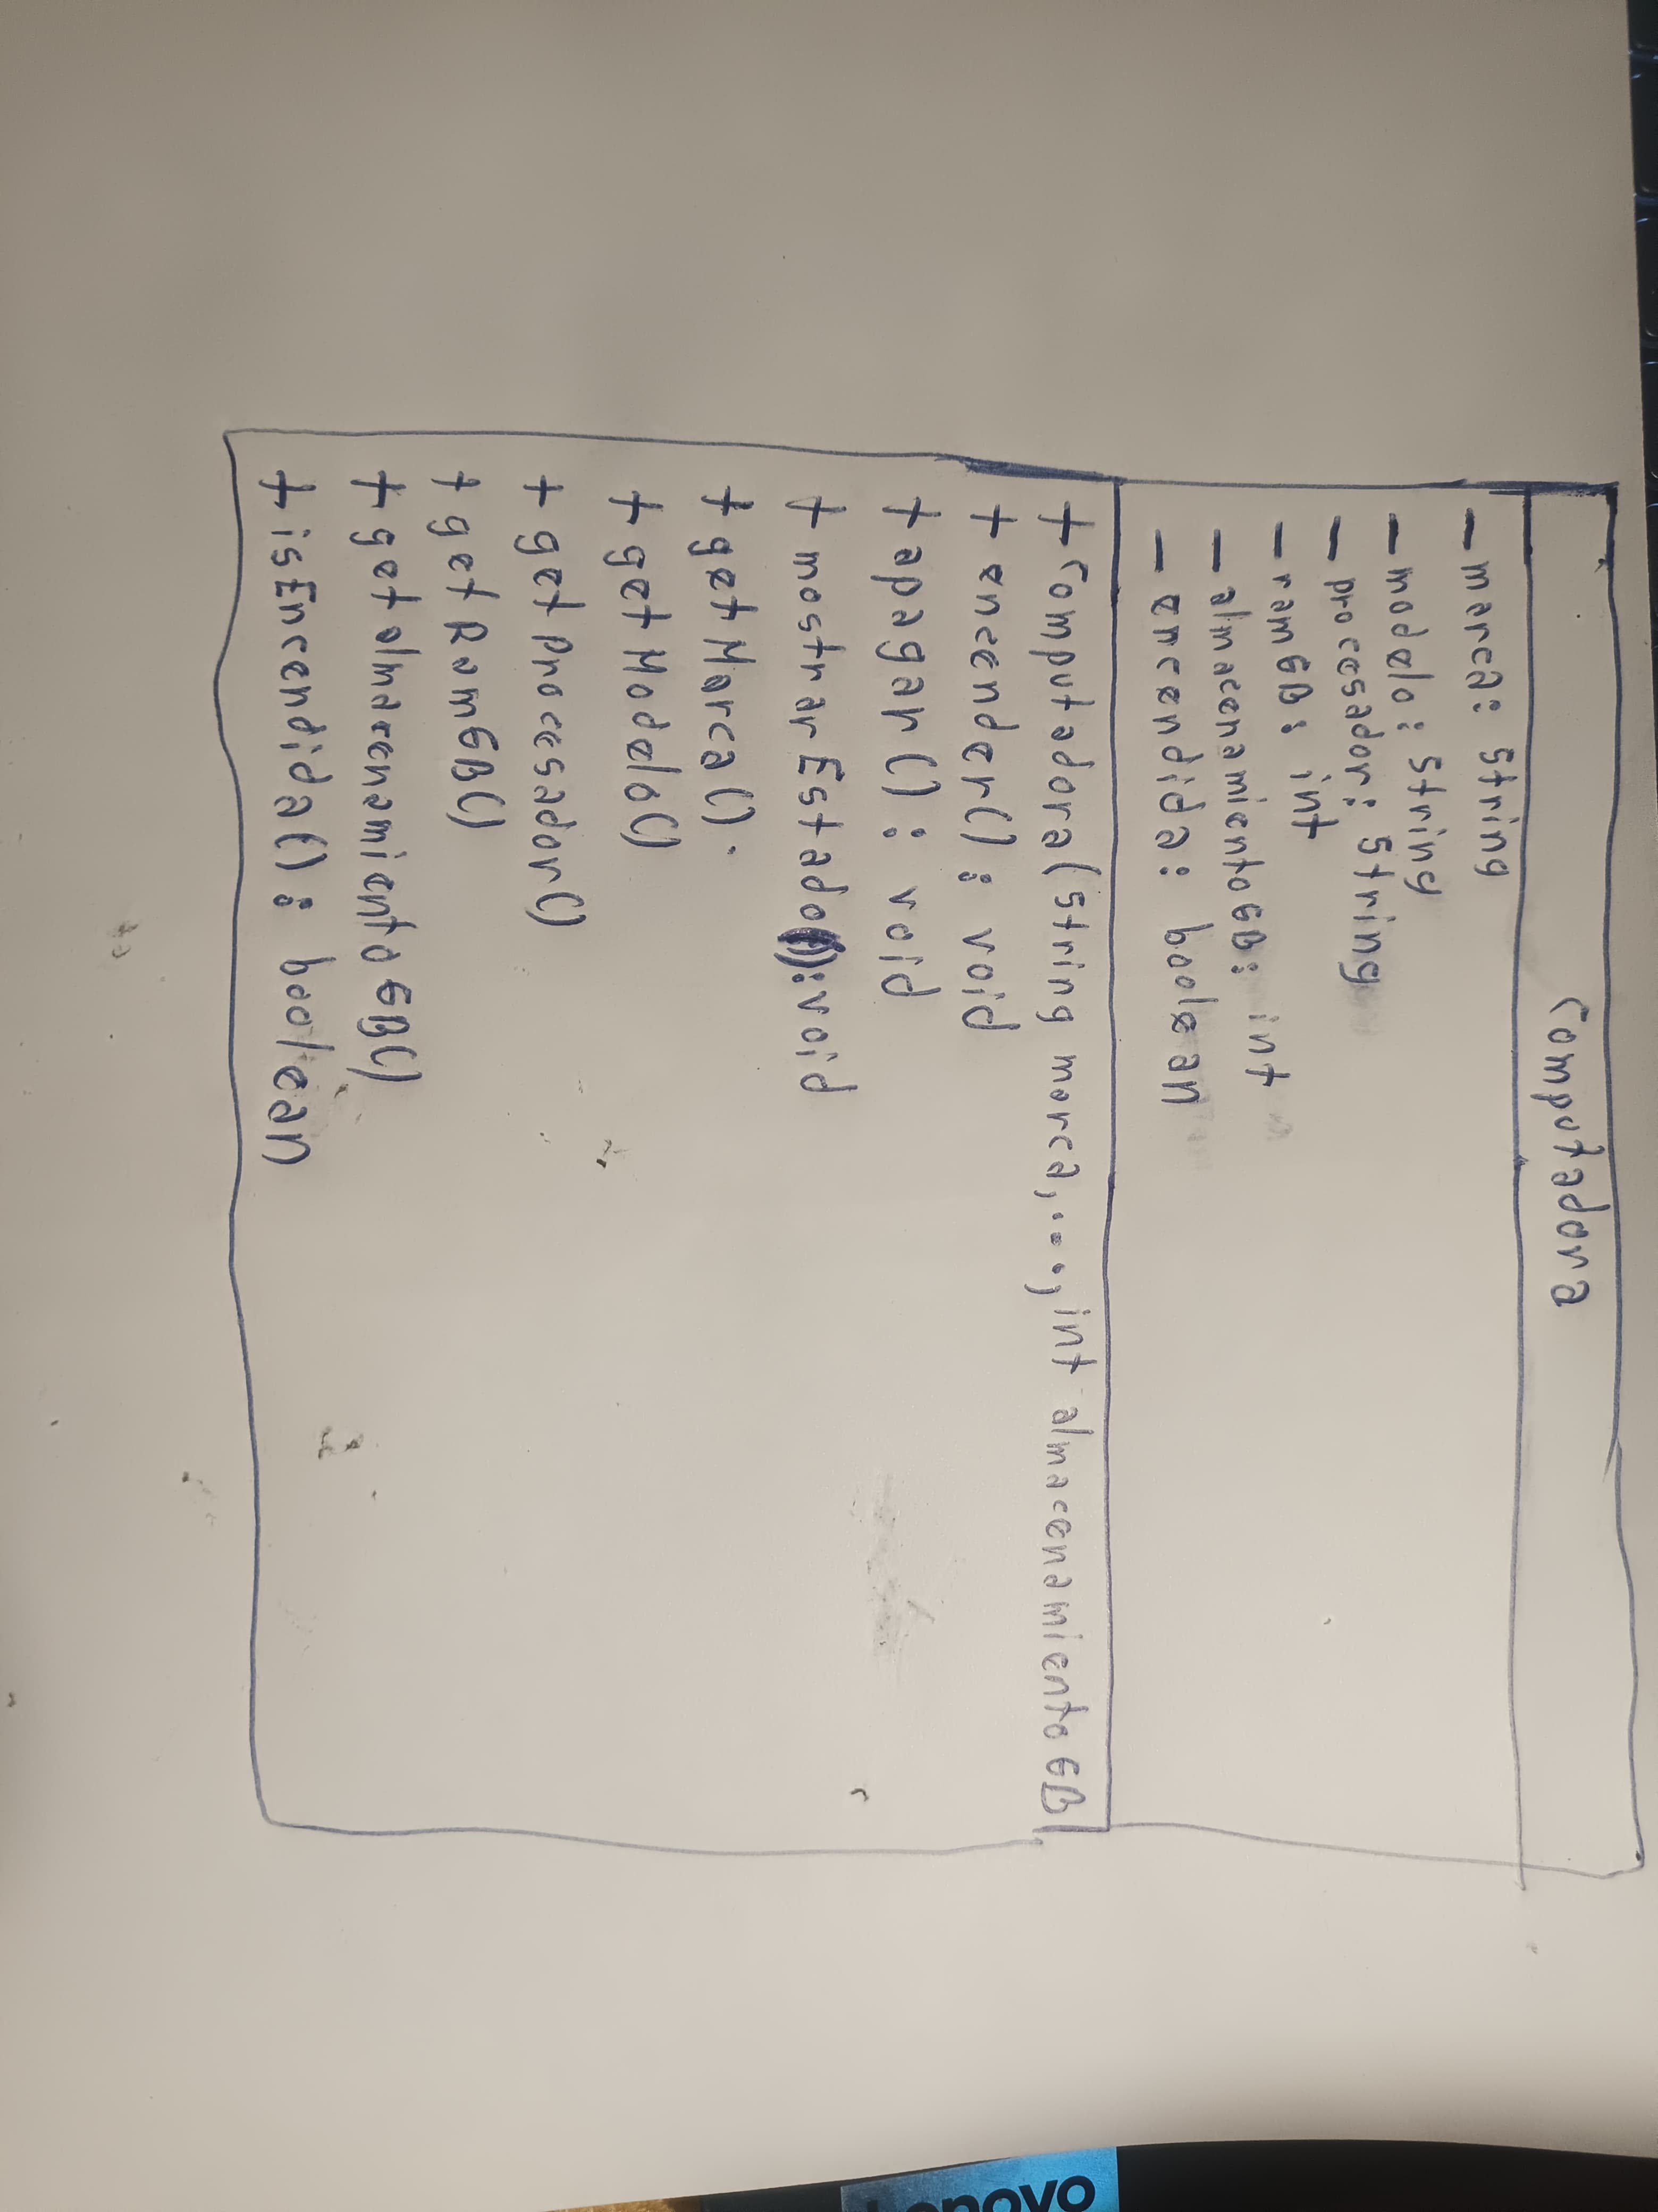 Computadora
- marca: String
- modelo: String
- procesador: String
- ramGB: int
- almacenamientoGB: int
- encendida: boolean
+ Computadora(String marca,...,int almacenamientoGB)
+ encender(): void
+ apagar(): void
+ mostrarEstado():void
+ getMarca().
+ getModelo()
+ getProcesador()
+ getRamGB()
+ getalmacenamientoGB()
+ isEncendida(): boolean
Lenovo